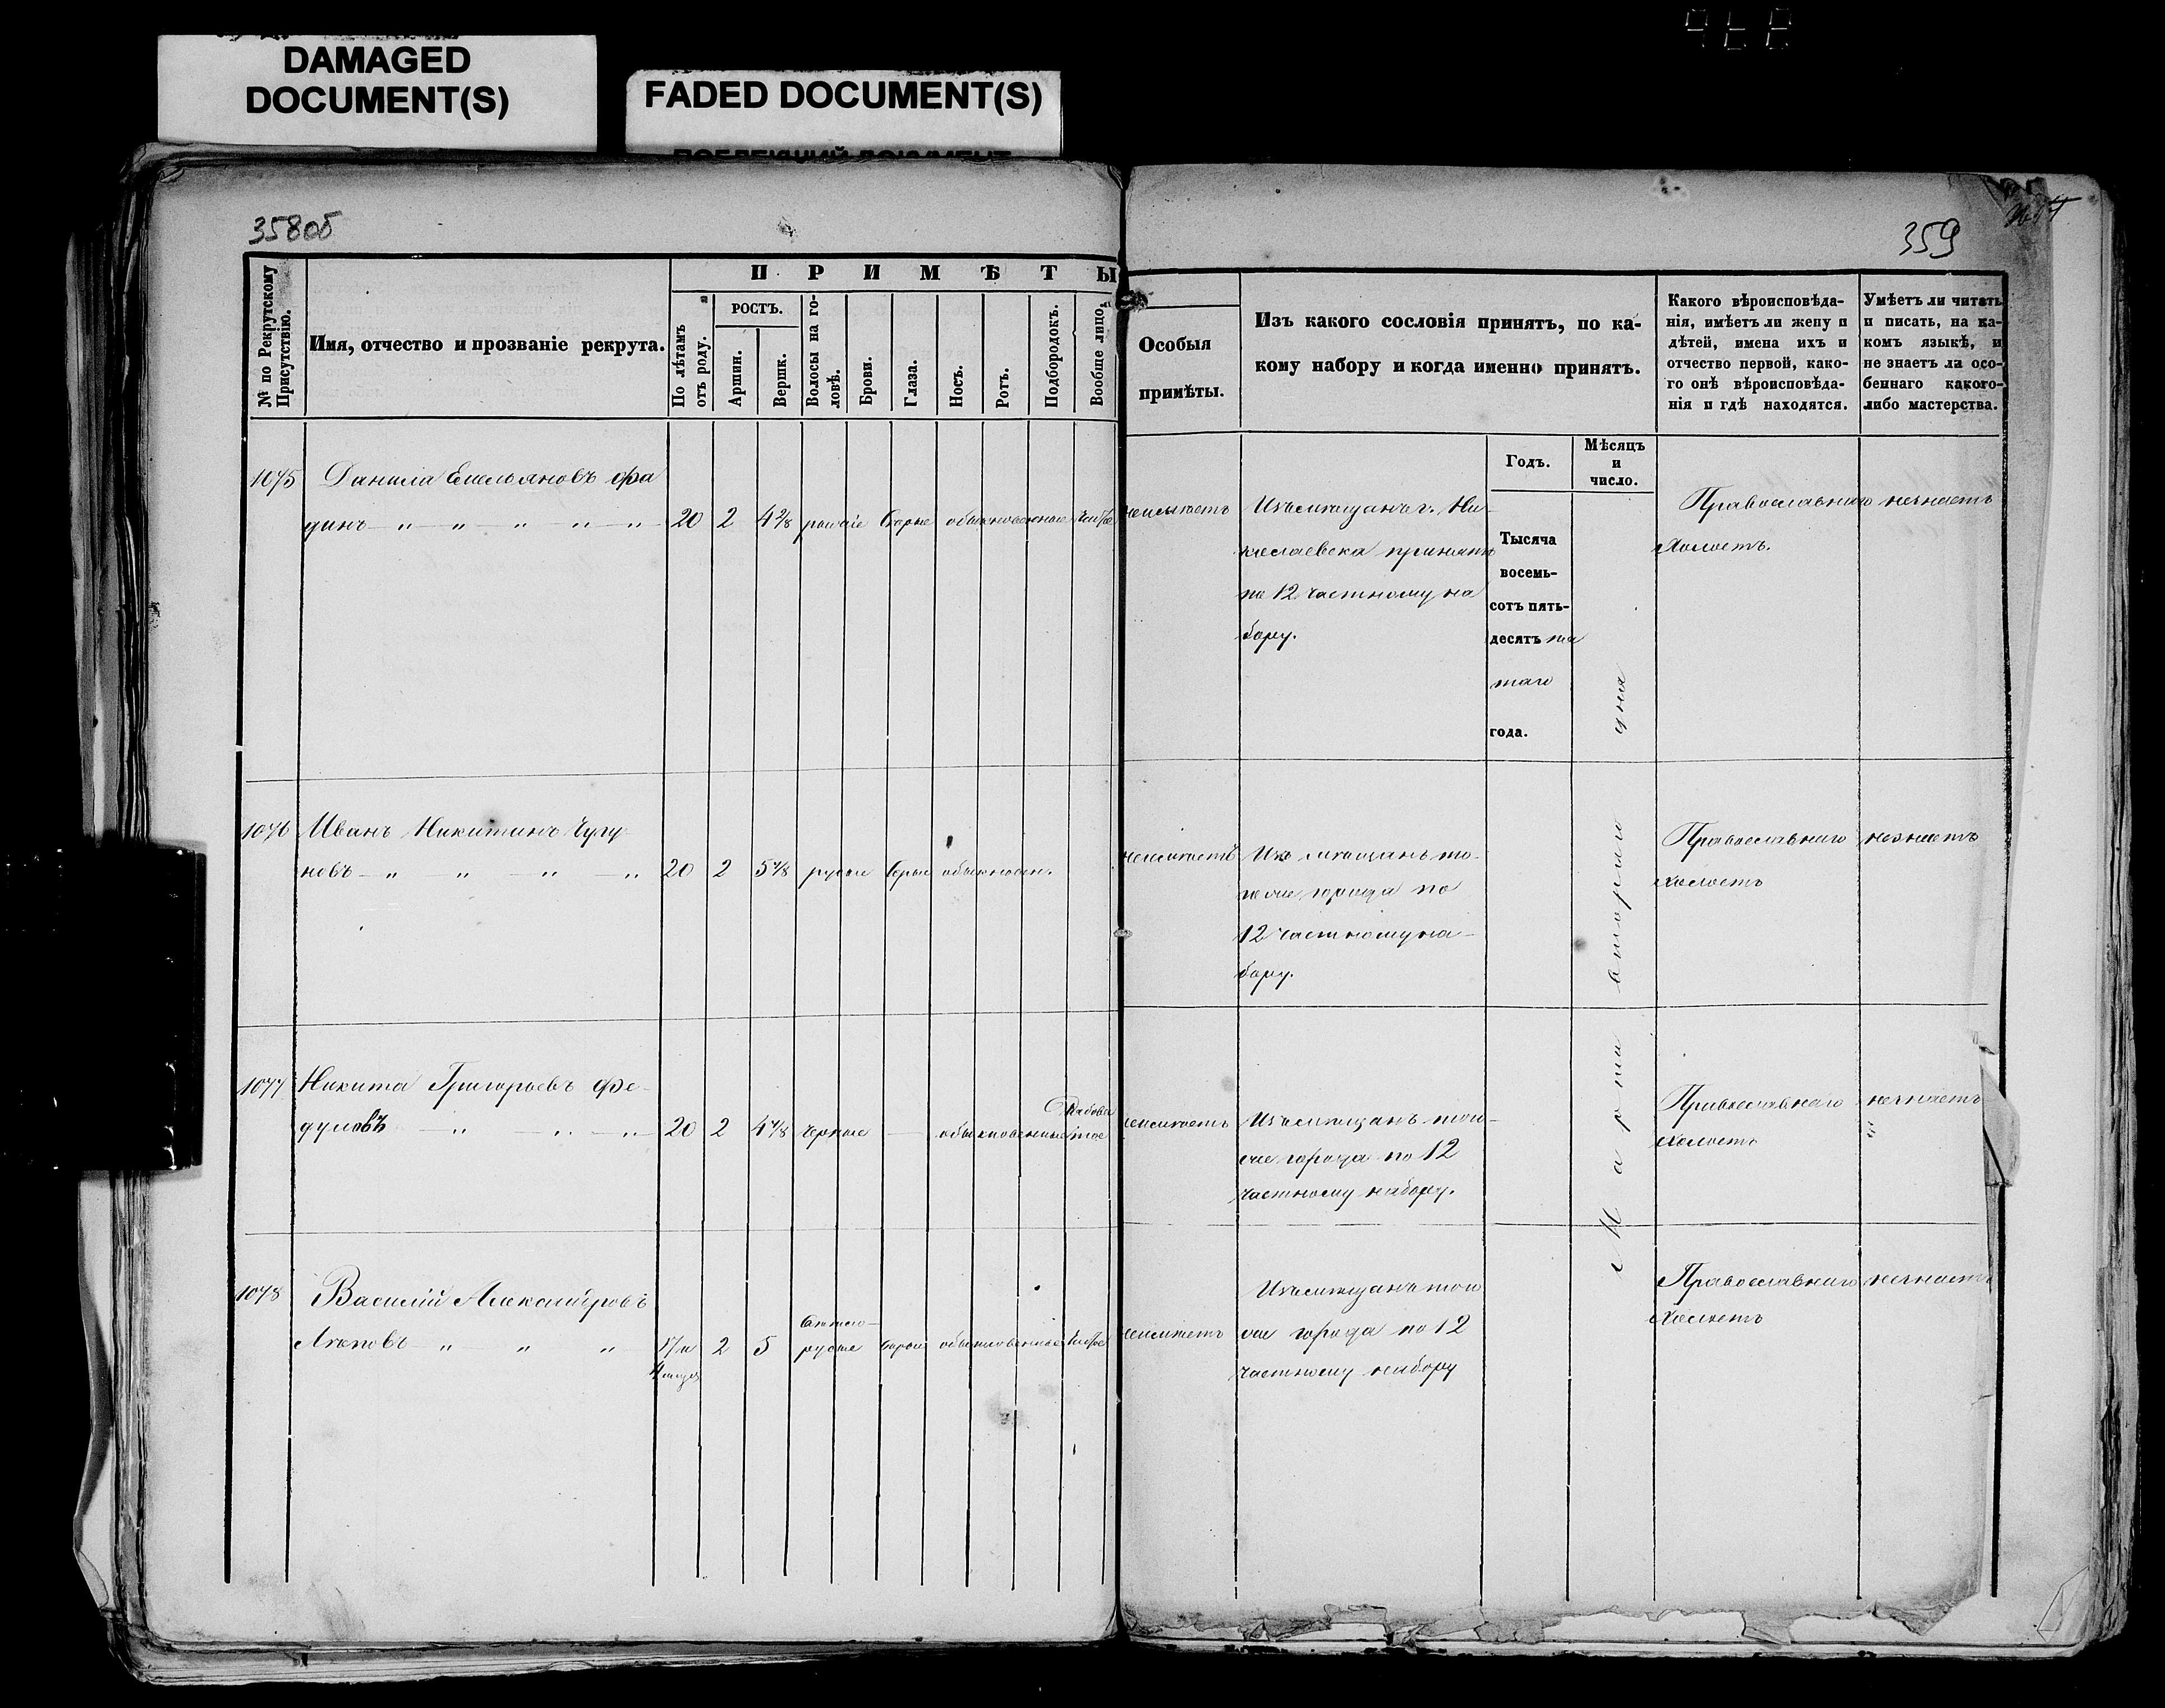 DAMAGED
DOCUMENT(S)
FADED DOCUMENT(S)
358об
359
№ по Рекрутскому
Присутствію.
Имя, отчество и прозваніе рекрута.
П Р И М Ѣ Т Ы
По лѣтамъ
отъ роду.
РОСТЪ.
Аршин.
Вершк.
Волосы на го-
ловѣ.
Брови.
Глаза.
Носъ.
Ротъ.
Подбородокъ.
Вообще лицо.
Особыя
примѣты.
Изъ какого сословія принятъ, по ка-
кому набору и когда именно принятъ.
Какого вѣроисповѣда-
нія, имѣетъ ли жену и
дѣтей, имена ихъ и
отчество первой, како-
го онѣ вѣроисповѣда-
нія и гдѣ находятся.
Умѣетъ ли читать
и писать, на ка-
комъ языкѣ, и
не знаетъ ла осо-
беннаго какого-
либо мастерства.
Годъ.
Мѣсяцъ
и
число.
1075 Данила Емельяновъ Фа
динъ 20 2 4 2/8 русые сѣрые обыкновенные чистое
неимѣетъ
Изъ мещанъ г. Ни-
колаевска принятъ
по 12 частному на
бору.
Тысяча
восемь-
сотъ пять-
десятъ пя
таго
года.
Марта втораго дня
Православнаго
Холостъ.
незнаетъ
1076 Иванъ Никитинъ Чугу
новъ 20 2 5 4/8 русые сѣрые обыкновен.
неимѣетъ
Изъ мещанъ то-
го же города по
12 частному на-
бору.
Православнаго
Холостъ
незнаетъ
1077 Никита Григорьевъ Фе-
дуловъ 20 2 4 4/8 черные обыкновенные Рябова
тое
неимѣетъ
Изъ мещанъ того-
же города по 12
частному набору.
Православнаго
Холостъ
незнаетъ
1078 Василій Александровъ
2 5 Светло-
русые сѣрые обыкновенные чистое
неимѣетъ
Изъ мещанъ того
же города по 12
частному набору
Православнаго
Холостъ
незнаетъ